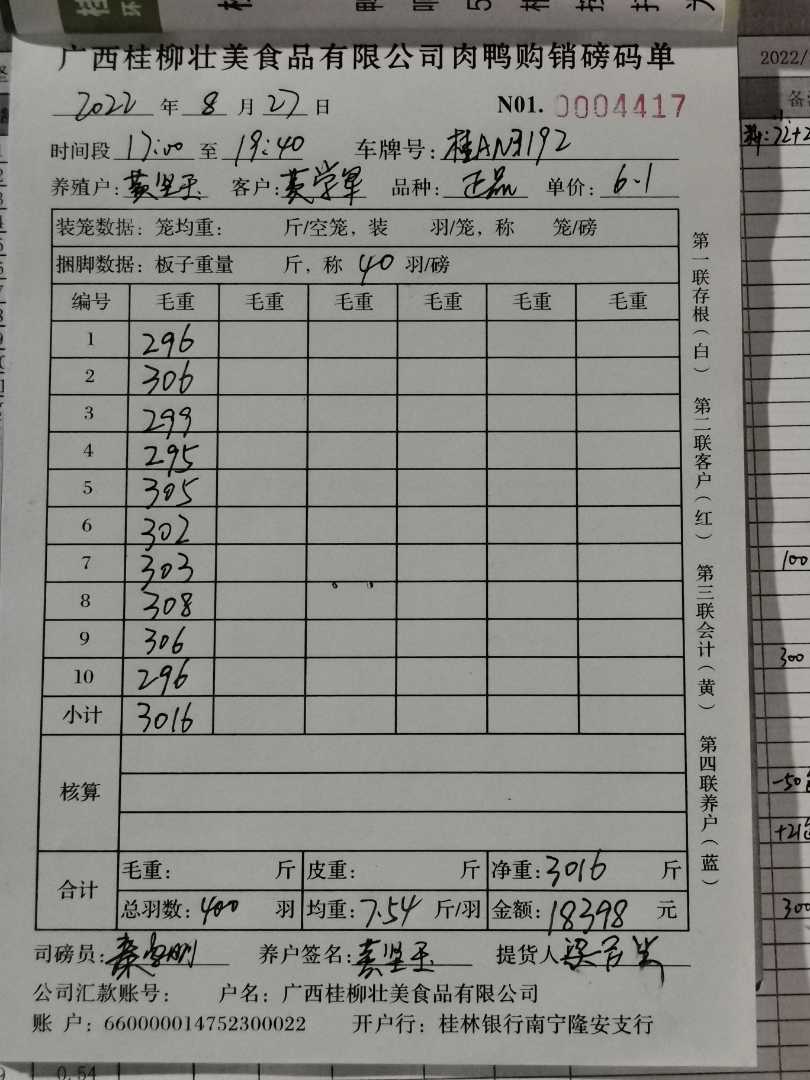 广西桂柳壮美食品有限公司肉鸭购销磅码单
2022 年 8 月 27 日 N01. 0004417
时间段 17:00 至 19:40 车牌号: 桂AN3192
养殖户: 黄坚玉 客户: 黄学军 品种: 正品 单价: 6.1
装笼数据: 笼均重: 斤/空笼, 装 羽/笼, 称 笼/磅
捆脚数据: 板子重量 斤, 称 40 羽/磅
编号 毛重 毛重 毛重 毛重 毛重 毛重
1 296
2 306
3 299
4 295
5 305
6 302
7 303
8 308
9 306
10 296
小计 3016
核算
合计 毛重: 斤 皮重: 斤 净重: 3016 斤
总羽数: 400 羽 均重: 7.54 斤/羽 金额: 18398 元
司磅员: 养户签名: 黄坚玉 提货人
公司汇款账号: 户名: 广西桂柳壮美食品有限公司
账 户: 660000014752300022 开户行: 桂林银行南宁隆安支行
第一联存根(白) 第二联客户(红) 第三联会计(黄) 第四联养户(蓝)
2022/
100
300
-50
300
0.54